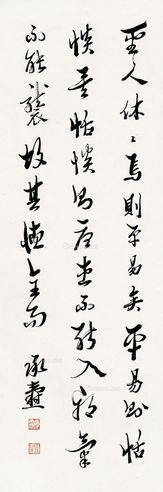 聖人休休焉則平易矣平易則恬
惔矣恬惔則憂患不能入邪氣
不能襲故其德全而